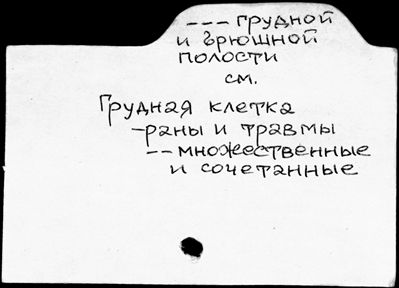 --- грудной
и брюшной
полости
см.
Грудная клетка
-раны и травмы
-- множественные
и сочетанные